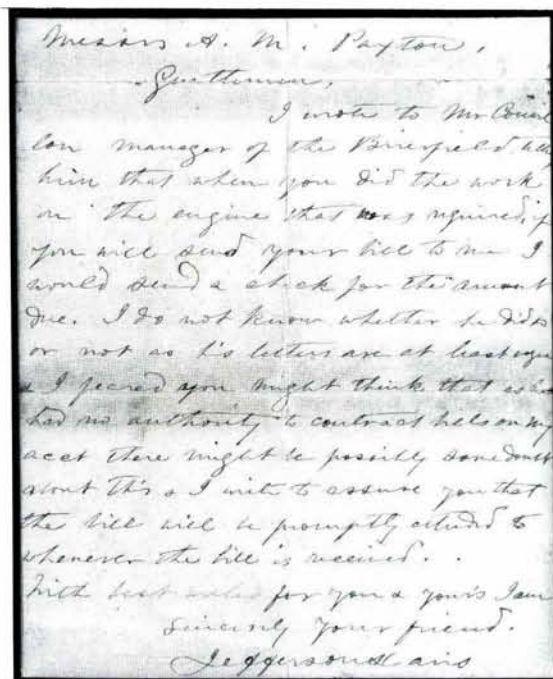 Messrs A. M. Paxton,
Gentlemen,
I wrote to Mr
lon manager of the Brierfield,
him that when you did the work
on the engine that was required, if
you will send your bill to me I
would send a check for the amount
due. I do not know whether he did so
or not as his letters are at least
& I feared you might think that as he
had no authority to contract bills on my
acct there might be possibly some doubt
about this & I write to assure you that
the bill will be promptly attended to
whenever the bill is received.
With best for you & your's I am
Sincerely your friend.
Jefferson Davis